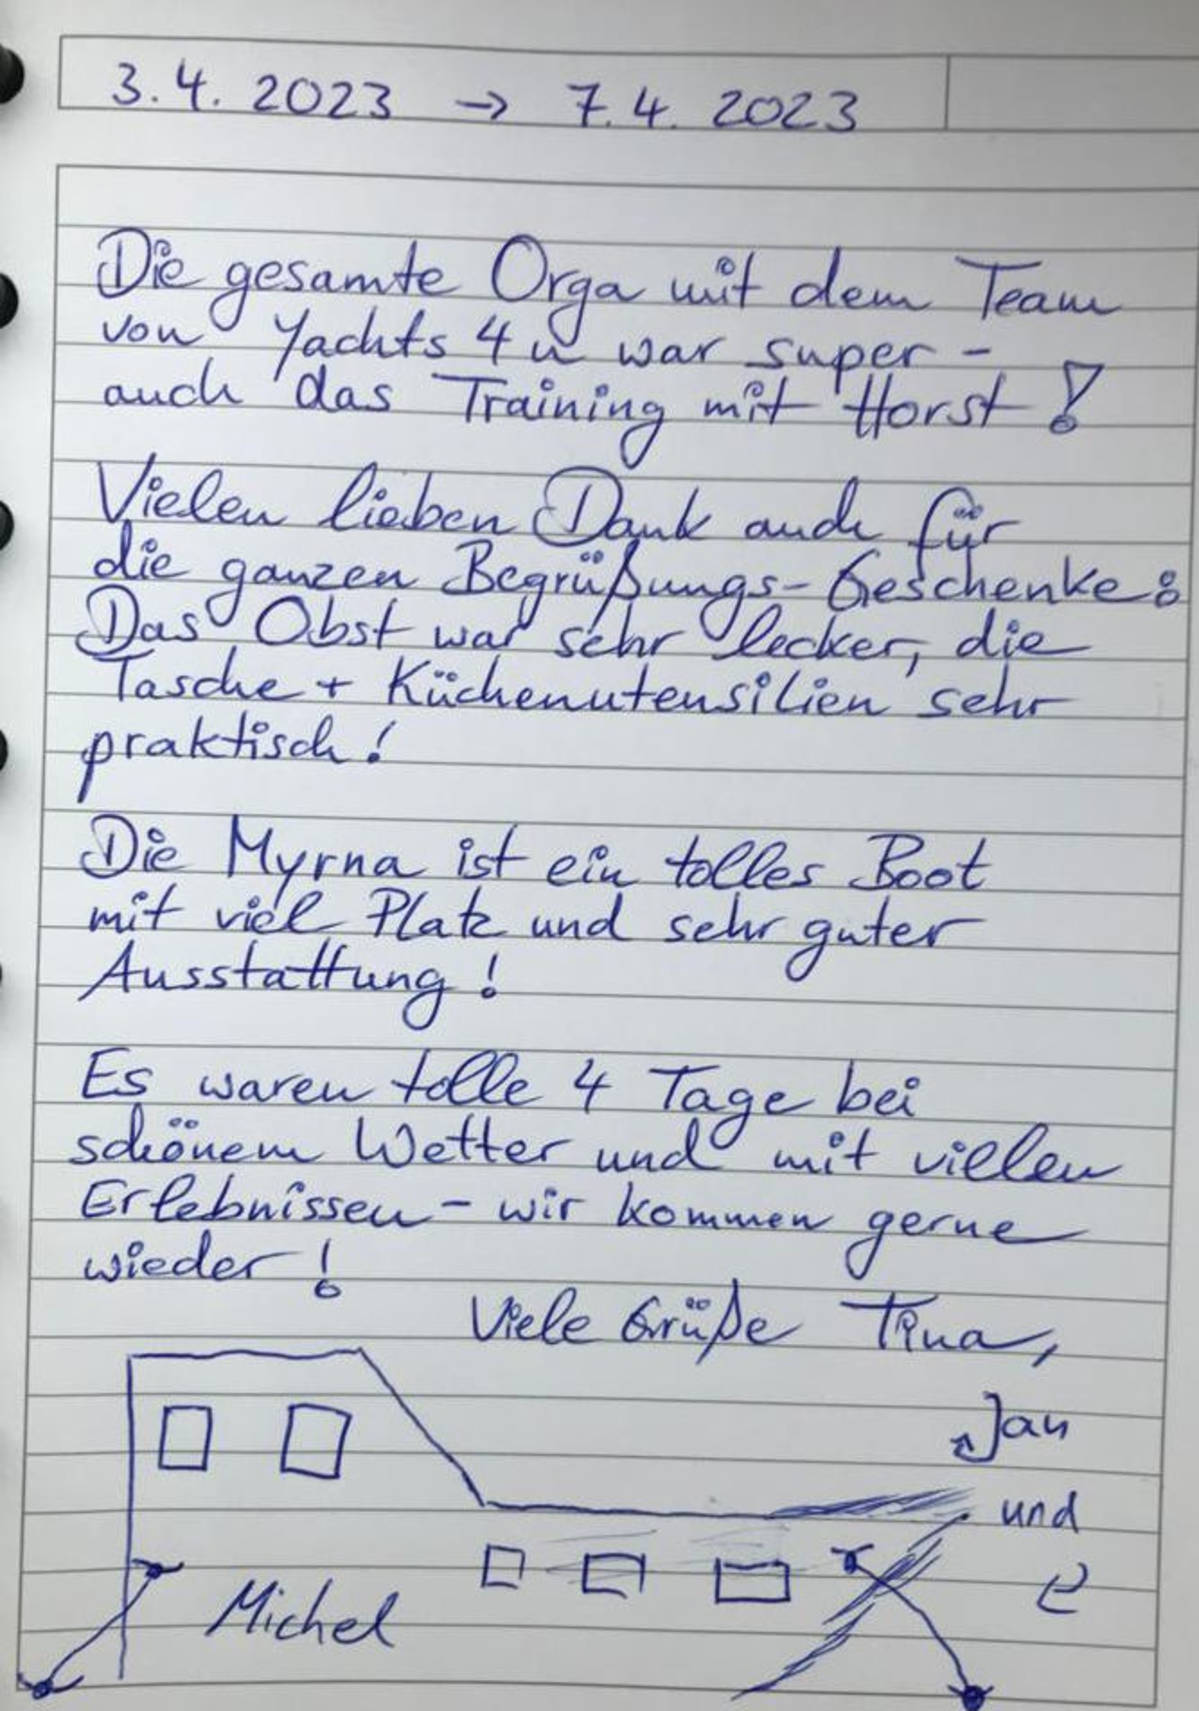 3.4. 2023 → 7.4. 2023
Die gesamte Orga mit dem Team
von Yachts 4 u war super -
auch das Training mit Horst!
Vielen lieben Dank auch für
die ganzen Begrüßungs-Geschenke:
Das Obst war sehr lecker, die
Tasche + Küchenutensilien sehr
praktisch!
Die Myrna ist ein tolles Boot
mit viel Platz und sehr guter
Ausstattung!
Es waren tolle 4 Tage bei
schönem Wetter und mit vielen
Erlebnissen - wir kommen gerne
wieder!
Viele Grüße Tina,
Jan
und
Michel